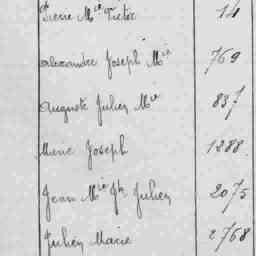 Pierre Mie Victor 14
Alexandre Joseph Mie 769
Auguste Julien Mie 837
Marie Joseph 1288
Jean Mie Jh Julien 2075
Julien Marie 2768